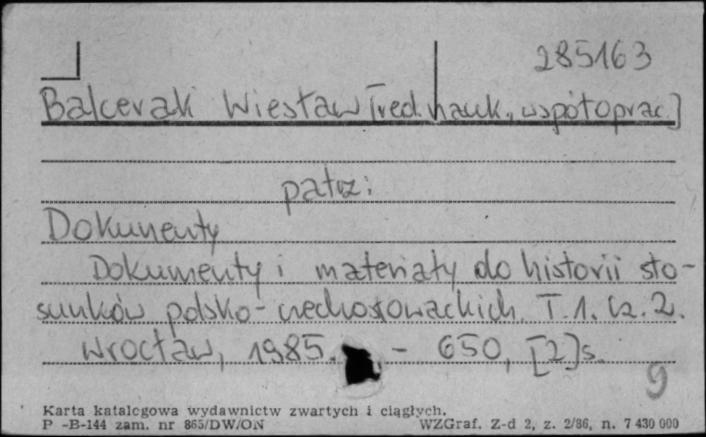 285163
Balcerak Wiesław [red. nauk., współoprac.]
patrz:
Dokumenty
Dokumenty i materiały do historii sto-
sunków polsko-czechosłowackich. T. 1. Cz. 2.
Wrocław, 1985. - 650, [2] s.
9
Karta katalogowa wydawnictw zwartych i ciągłych.
P -B-144 zam. nr 865/DW/ON WZGraf. Z-d 2, z. 2/86, n. 7 430 000